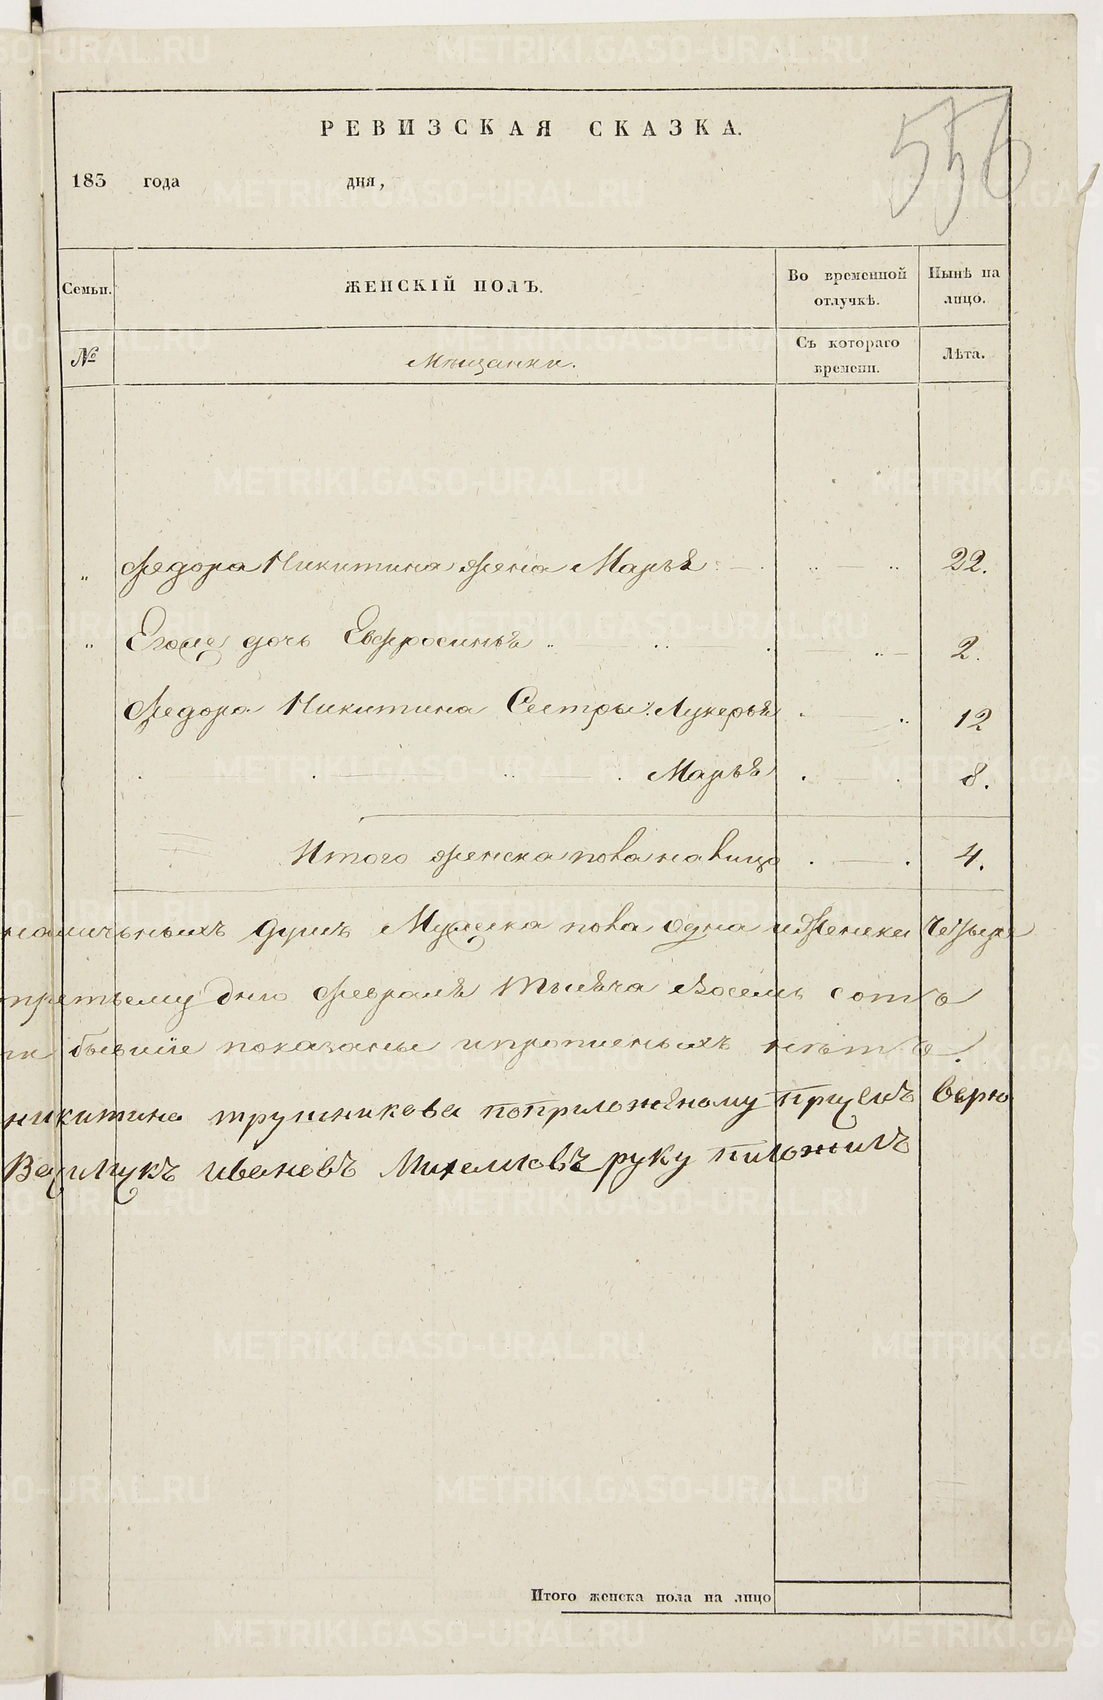 556
РЕВИЗСКАЯ СКАЗКА.
183 года дня,
Семьи. ЖЕНСКІЙ ПОЛЪ. Во временной отлучкѣ. Нынѣ на лицо.
№ Мѣщанки. Съ котораго времени. Лѣта.
„ Федора Никитина жена Марья 22.
„ Егоже дочь Евфросинья 2.
Федора Никитина Сестры: Лукерья 12
Марья 8.
Итого женска пола на лицо 4.
наличныхъ душъ Мужеска пола одна и Женска Четыре
третьему дню февраля тысяча восемь сотъ
бывшіе показаны и прописныхъ нѣтъ.
никитина трушникова поприложеному прузмъ верю
ивановъ руку приложилъ
Итого женска пола на лицо
METRIKI.GASO-URAL.RU